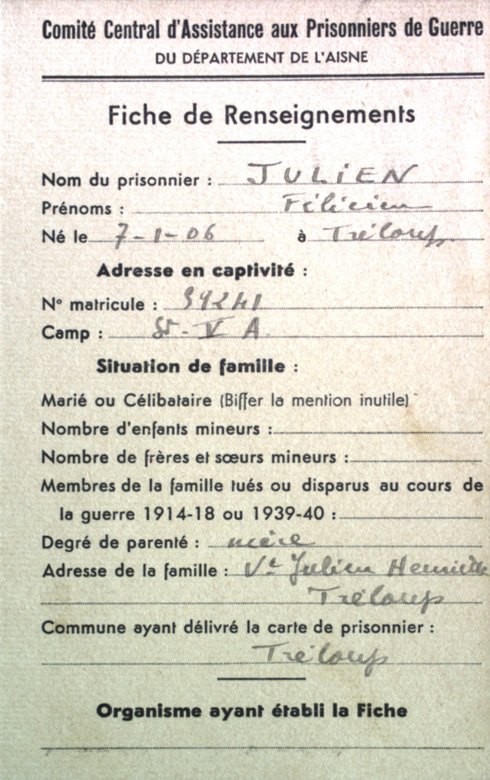 Comité Central d'Assistance aux Prisonniers de Guerre
DU DÉPARTEMENT DE L'AISNE
Fiche de Renseignements
Nom du prisonnier : JULIEN
Prénoms : Félicien
Né le 7-1-06 à Tréloup
Adresse en captivité :
N° matricule : 39241
Camp : St - V A
Situation de famille :
Marié ou Célibataire (Biffer la mention inutile)
Nombre d'enfants mineurs :
Nombre de frères et sœurs mineurs :
Membres de la famille tués ou disparus au cours de
la guerre 1914-18 ou 1939-40 :
Degré de parenté : mère
Adresse de la famille : Ve Julien Henriette
Tréloup
Commune ayant délivré la carte de prisonnier :
Tréloup
Organisme ayant établi la Fiche